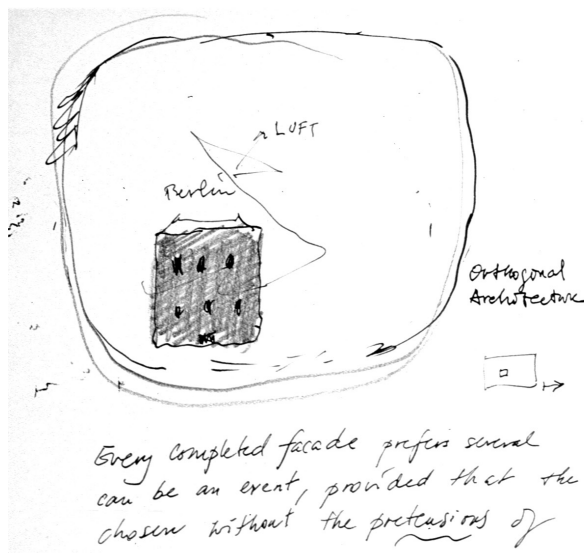 LUFT
Berlin
Orthogonal
Architecture
Every completed facade prefers several
can be an event, provided that the
chosen without the pretensions of